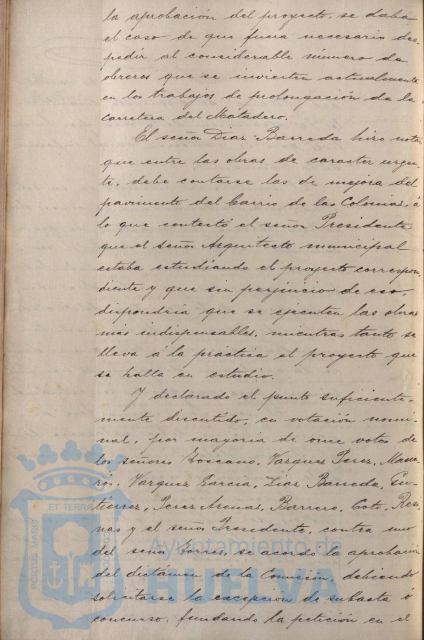 la aprobación del proyecto, se daba
el caso de que fuera necesario des
pedir al considerable número de
obreros que se invierten actualmente
en los trabajos de prolongación de la
carretera del Matadero.
El señor Diaz Barreda hizo notar
que entre las obras de caracter urgen
te, debe contarse las de mejora del
pavimento del barrio de las Colonias, á
lo que contestó el señor Presidente
que el señor Arquitecto municipal
estaba estudiando el proyecto correspon
diente y que sin perjuicio de eso,
dispondria que se ejecuten las obras
más indispensables, mientras tanto se
lleva á la práctica el proyecto que
se halla en estudio.
Y declarado el punto suficiente-
mente discutido, en votación nomi-
nal, por mayoria de once votos de
los señores Toscano, Vazquez Perez,
ro, Vazquez Garcia, Diaz Barreda, Gu-
tierrez, Perez Arenas, Barrero, Coto,
y el señor Presidente, contra uno
del señor Torres, se acordó la aprobación
del dictamen de la Comisión, debiendo
solicitarse la excepción de subasta ó
concurso, fundando la petición en el
PORTUS MARIS ET TERRAE
Ayuntamiento de
HUELVA